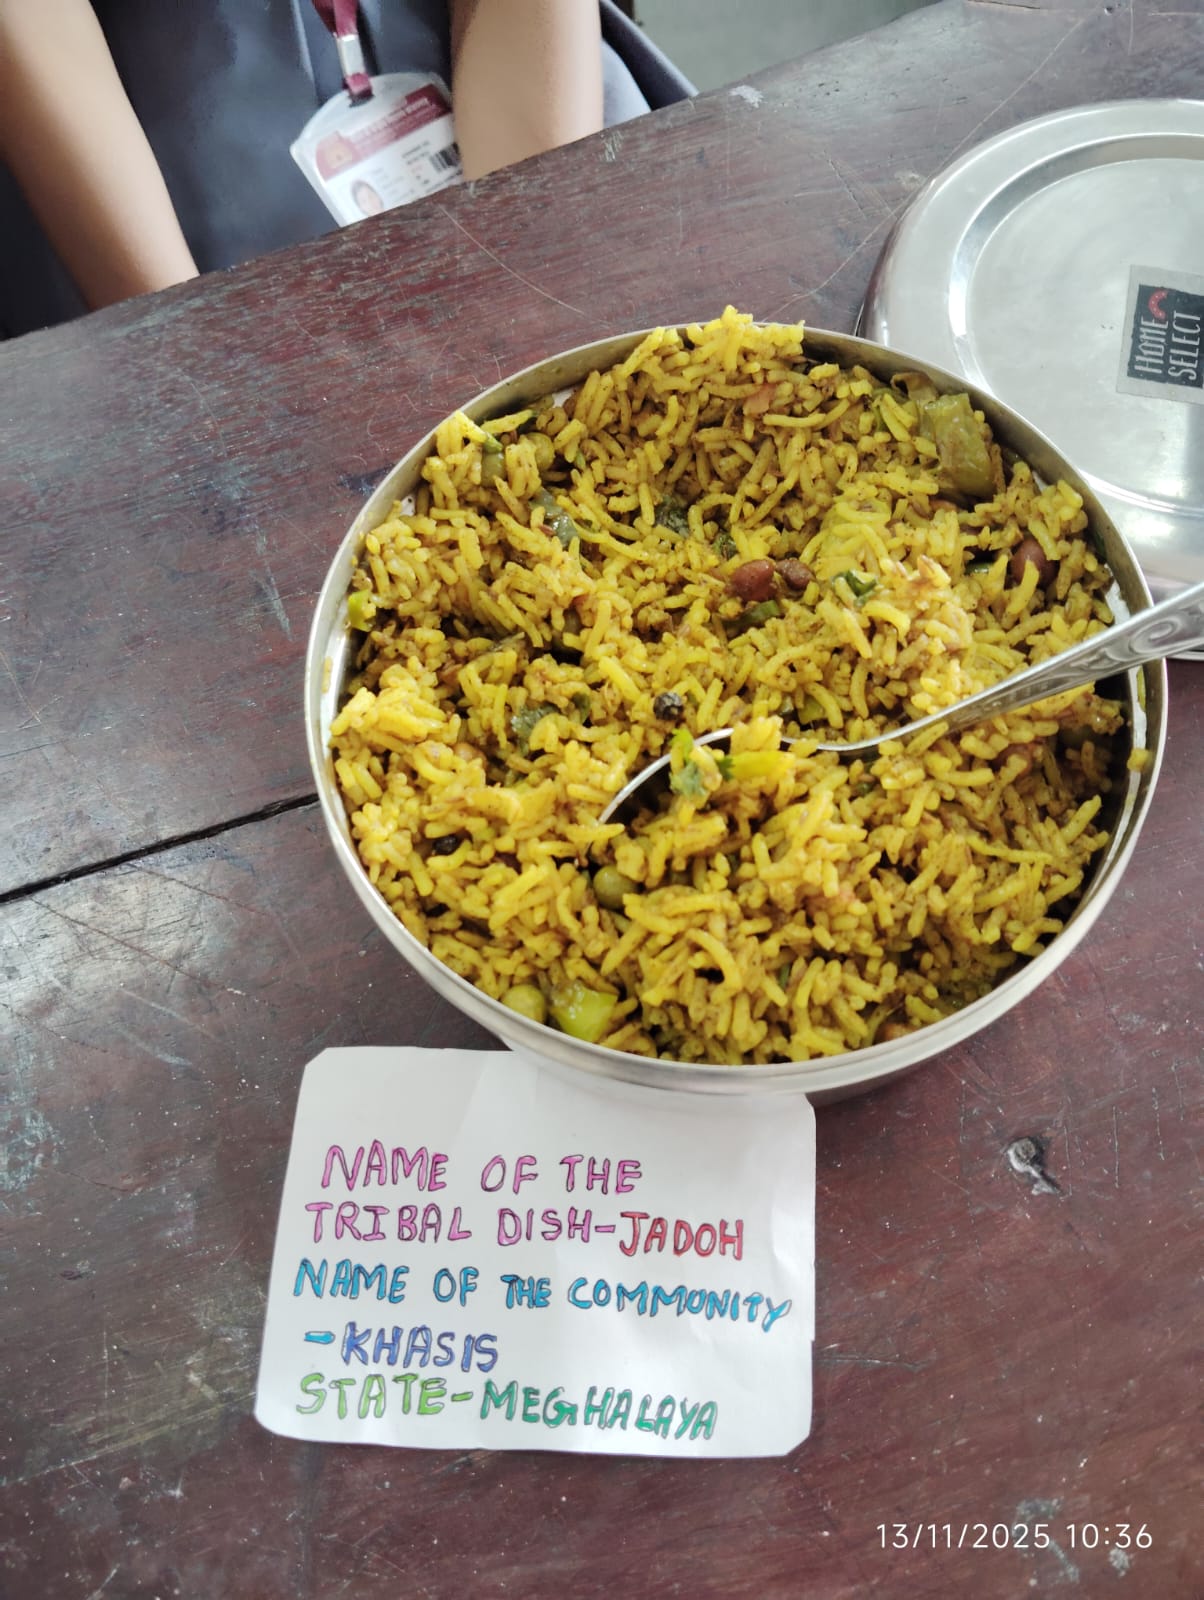 HOME
SELECT
NAME OF THE
TRIBAL DISH-JADOH
NAME OF THE COMMUNITY
-KHASIS
STATE-MEGHALAYA
13/11/2025 10:36